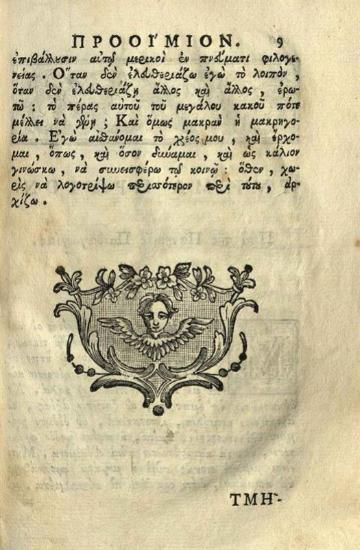 ΠΡΟΟΊΜΙΟΝ. 9
ἐπιβάλλουσιν αὐτῷ μερικοὶ ἐν πνεύματι φιλογε-
νείας. Ὅταν δὲν ἐλευθεριάζω ἐγὼ τὸ λοιπόν,
ὅταν δὲν ἐλευθεριάζῃ ἄλλος καὶ ἄλλος, ἐρω-
τῶ: τὸ πέρας αὐτοῦ τοῦ μεγάλου κακοῦ πότε
μέλλει νὰ ; Καὶ ὅμως μακρὰν ἡ μακρηγο-
ρία. Ἐγὼ αἰσθάνομαι τὸ χρέος μου, καὶ ἔρχο-
μαι, ὅπως, καὶ ὅσον δύναμαι, καὶ ὡς κάλλιον
γινώσκω, νὰ συνεισφέρω τῷ κοινῷ: ὅθεν, χω-
ρὶς νὰ λογοτριψω περισσότερον περὶ τούτου, ἀρ-
χίζω.
ΤΜΗ-